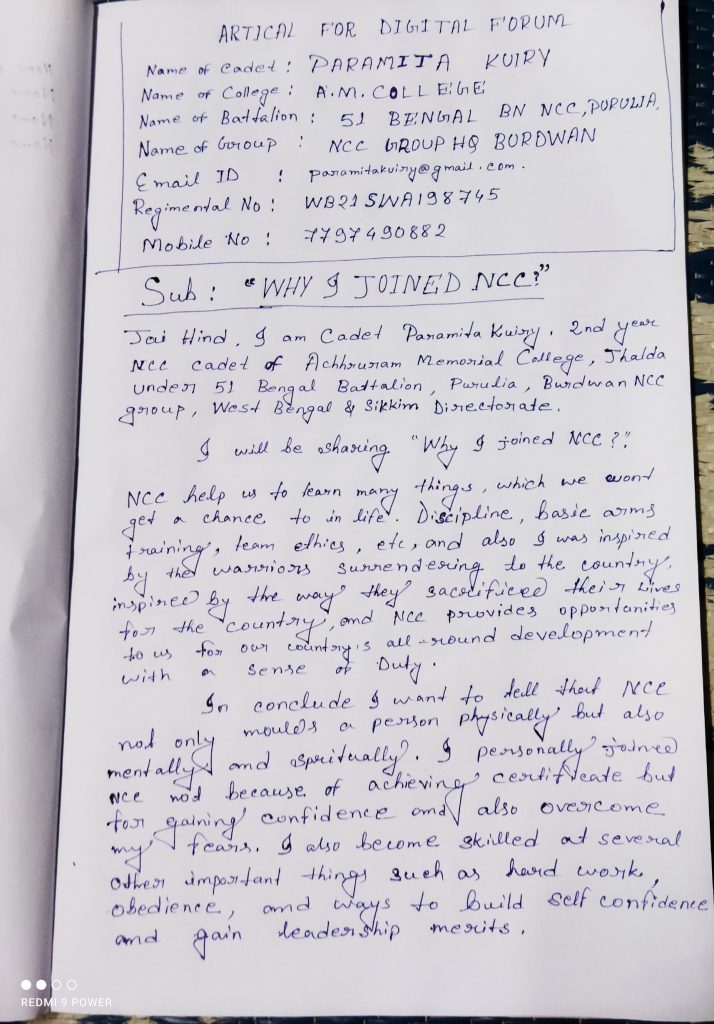 ARTICAL FOR DIGITAL FORUM
Name of Cadet : PARAMITA KUIRY
Name of College : A.M. COLLEGE
Name of Battalion : 51 BENGAL BN NCC, PURULIA,
Name of Group : NCC GROUP HQ BURDWAN
Email ID : paramitakuiry@gmail.com.
Regimental No : WB21SWA198745
Mobile No : 7797490882
Sub : "WHY I JOINED NCC?"
Jai Hind, I am Cadet Paramita Kuiry. 2nd year
NCC cadet of Achhruram Memorial College, Jhalda
under 51 Bengal Battalion, Purulia, Burdwan NCC
group, West Bengal & Sikkim Directorate.
I will be sharing "Why I joined NCC?".
NCC help us to learn many things, which we wont
get a chance to in life. Discipline, basic arms
training, team ethics, etc, and also I was inspired
by the warriors surrendering to the country,
inspired by the way they sacrificed their lives
for the country, and NCC provides opportunities
to us for our country's all-round development
with a sense of Duty.
In conclude I want to tell that NCC
not only moulds a person physically but also
mentally and spritually. I personally joined
NCC not because of achieving certificate but
for gaining confidence and also overcome
my fears. I also become skilled at several
other important things such as hard work,
obedience, and ways to build self confidence
and gain leadership merits.
REDMI 9 POWER